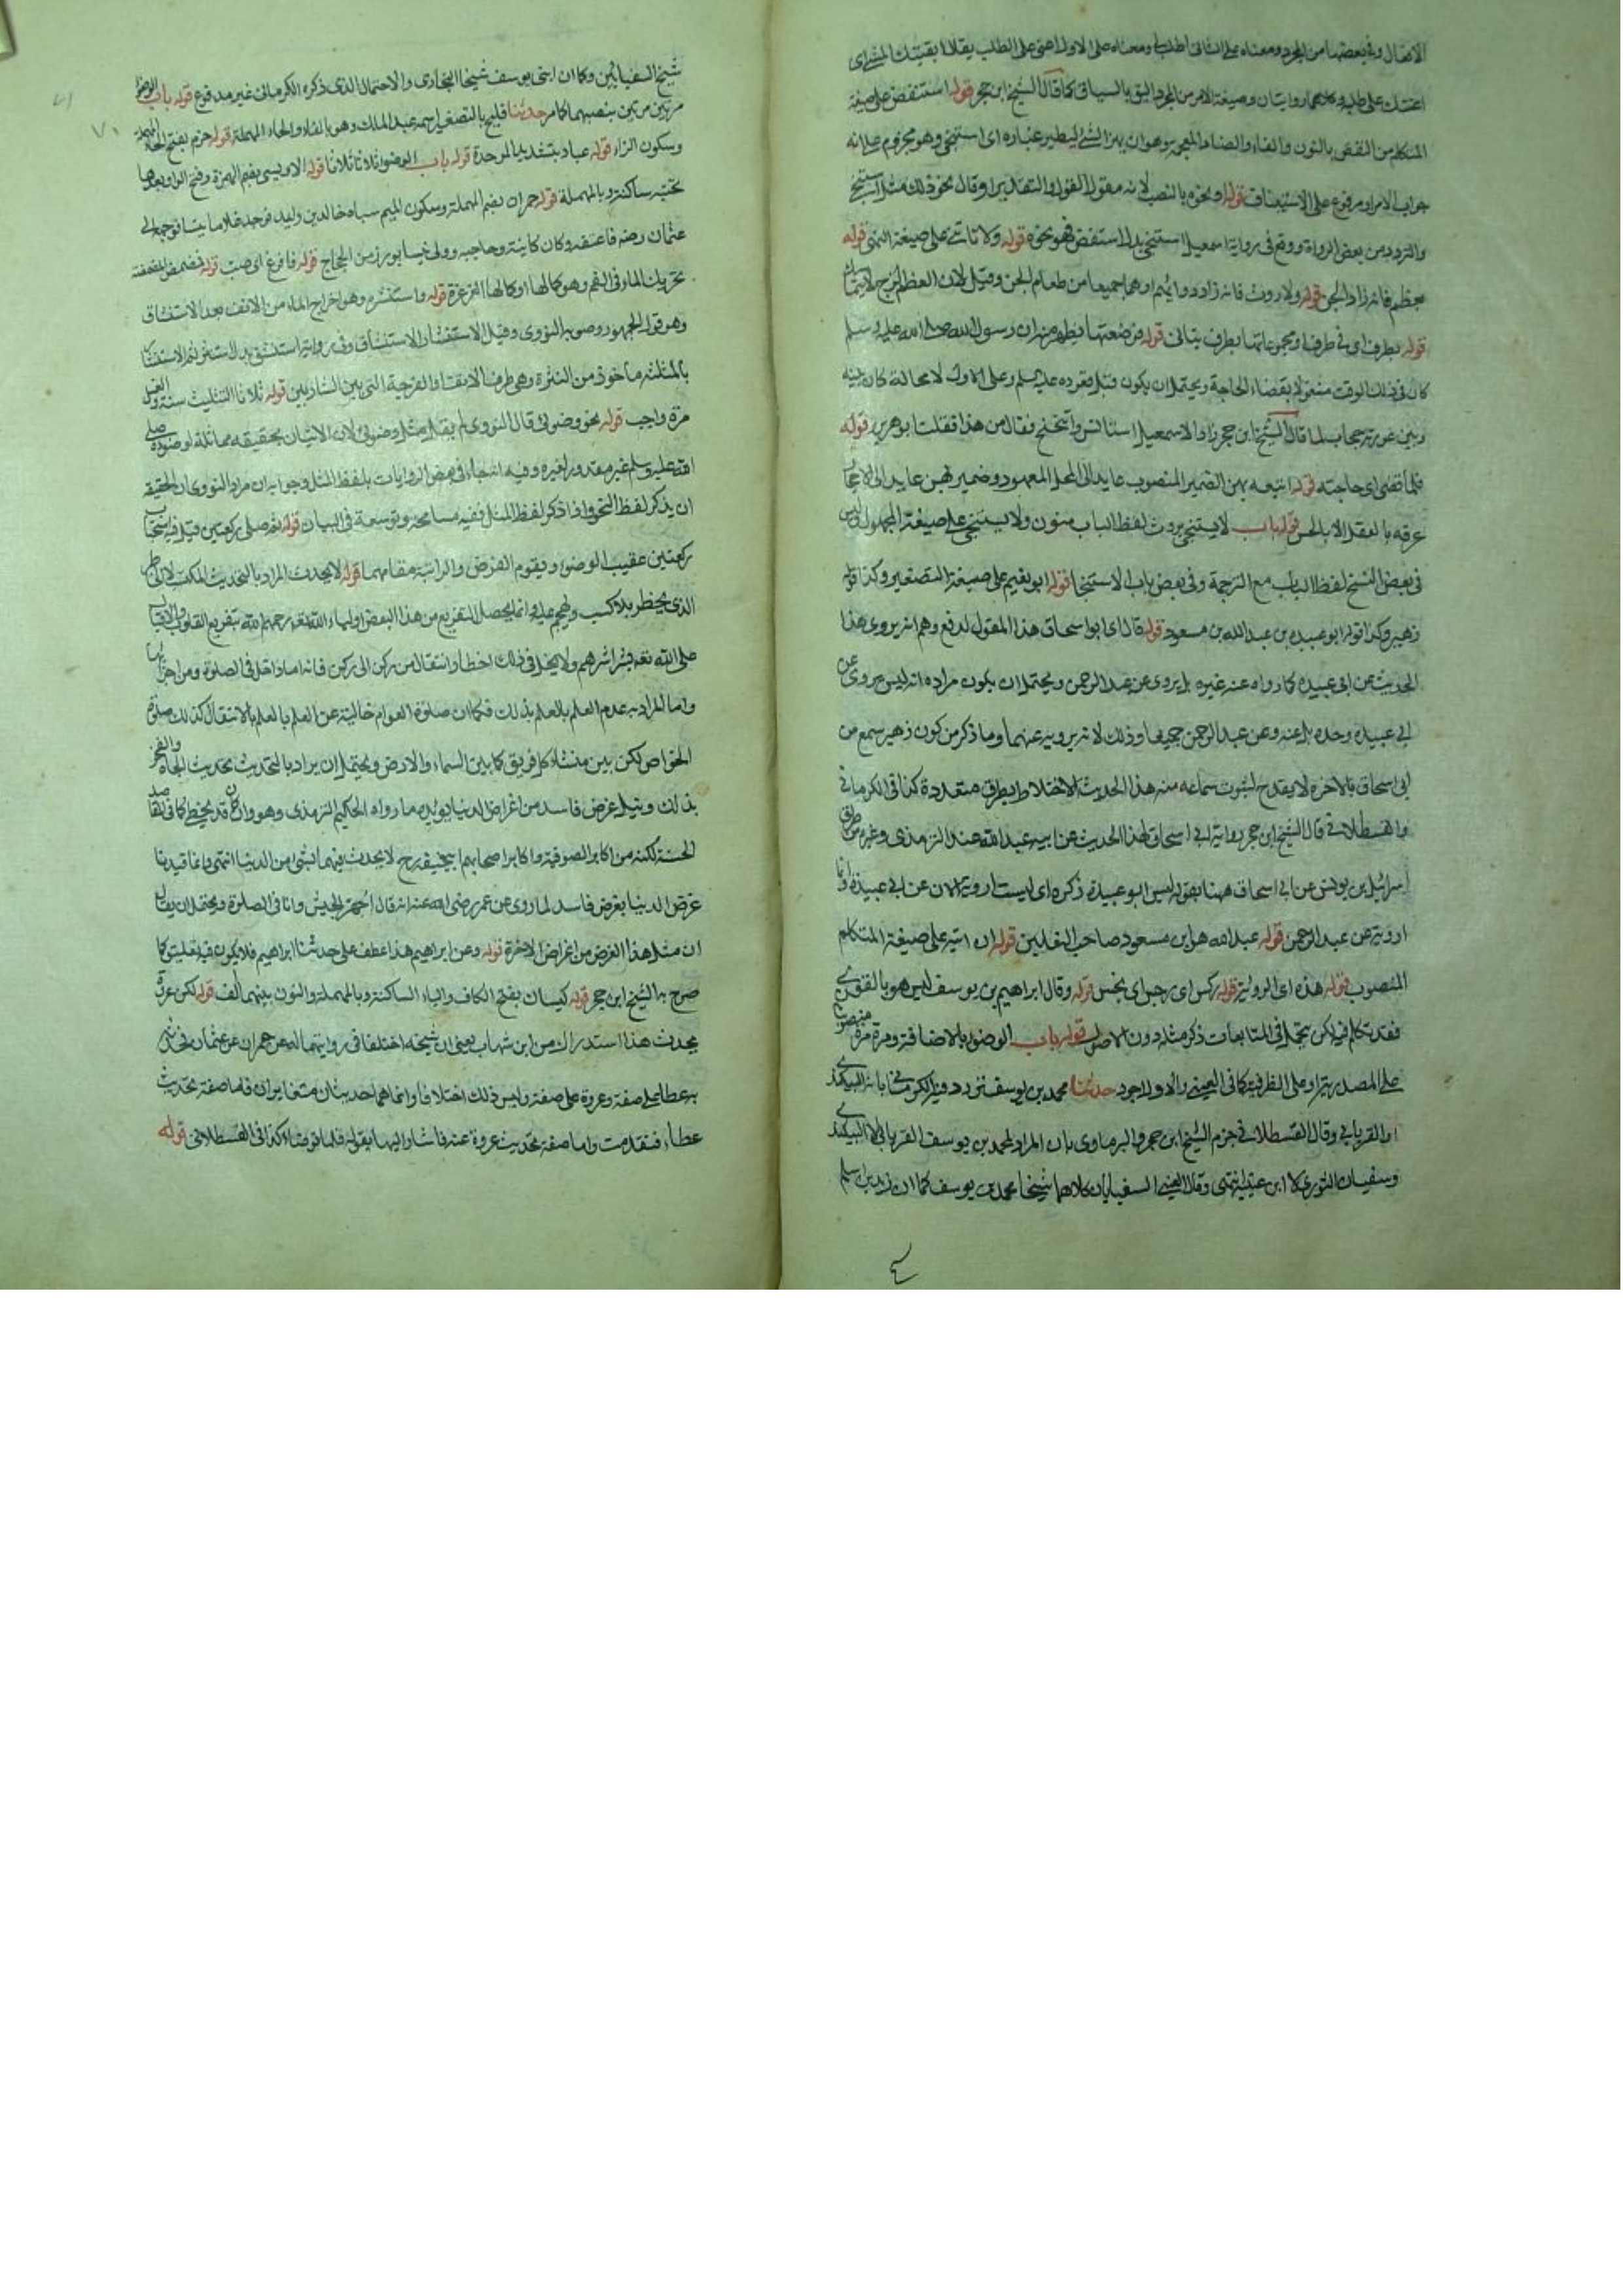 الافعال وفي بعضها من المجرد ومعناه على الثاني اطلب لي ومعناه على الاول اعني على الطلب يقال ابغيتك الشئ اي
اعنتك على طلبه وكلاهما روايتان وصيغة الامر من المجرد اليق بالسياق كما قال الشيخ ابن حجر قوله استنفض على صيغة
المتكلم من النفض بالنون والفاء والضاد المعجمة وهو ان يهز الشئ ليطير غباره اي استنجي وهو مجزوم على انه
جواب الامر او مرفوع على الاستيناف قوله او نحوه بالنصب لانه مقول القول والتقدير او قال نحو ذلك مثل استنجي
والتردد من بعض الرواة ووقع في رواية اسمعيل استنجي بدل استنفض فهو نحوه قوله ولا تأتني على صيغة النهي قوله
بعظم فانه زاد الجن قوله ولا روث فانه زاد دوابهم او هما جميعا من طعام الجن وقيل لان العظم لزج
قوله بطرف اي في طرف قوله فوضعتها فيظهر منه ان رسول الله صلى الله عليه وسلم
كان في ذلك الوقت مشغولا بقضاء الحاجة ويحتمل ان يكون قبل قعوده عليه السلم وعلى الاول لا محالة كان بينه
وبين عورته حجاب لما قال الشيخ ابن حجر زاد الاسمعيلي استأنس واتنحنح فقال من هذا فقلت ابو هريرة قوله
فلما قضى اي حاجته قوله اتبعه بهن الضمير المنصوب عايد الى المحل المعهود وضمير بهن عايد الى الاحجار
عرفه بالعقل لا بالحس قوله باب لا يستنجى بروث لفظ الباب منون ولا يستنجى على صيغة المجهول وليس
في بعض النسخ لفظ الباب مع الترجمة وفي بعض باب الاستنجا قوله ابو نعيم على صيغة التصغير وكذا قوله
زهير وكذا قوله ابو عبيدة بن عبد الله بن مسعود قوله قال اي ابو اسحاق هذا المقول لدفع وهم انه يروي هذا
الحديث عن ابي عبيدة كما رواه عنه غيره بل يروي عن عبد الرحمن ويحتمل ان يكون مراده انه ليس مروي عن
ابي عبيدة وحده بل عنه وعن عبد الرحمن جميعا وذلك لانه يرويه عنهما وما ذكر من كون زهير سمع من
ابي اسحاق بالاخرة لا يقدح لثبوت سماعه منه هذا الحديث قبل الاختلاط بطرق متعددة كذا في الكرماني
والقسطلاني قال الشيخ ابن حجر رواية ابي اسحاق لهذا الحديث عن ابيه عبد الله عند الترمذي وغيره من طرق
اسرائيل بن يونس عن ابي اسحاق فهنا بقوله ليس ابو عبيدة ذكره اي ليست ارويه الان عن ابي عبيدة وانما
ارويه عن عبد الرحمن قوله عبد الله هو ابن مسعود صاحب النعلين قوله ان اتيه على صيغة المتكلم
المنصوب قوله هذه اي الروثة قوله ركس اي رجس اي نجس قوله وقال ابراهيم بن يوسف ليس هو بالقوي
فقد تكلم فيه لكن يحتمل في المتابعات ذكر مثله دون الاصول قوله باب الوضوء بالاضافة ومرة مرة منصوبا
على المصدرية او على الظرفية كما في العيني والاول اجود حدثنا محمد بن يوسف تردد فيه الكرماني بانه البيكندي
او الفريابي وقال القسطلاني جزم الشيخ ابن حجر والبرماوي بان المراد لمحمد بن يوسف الفريابي لا البيكندي
وسفيان الثوري لا ابن عيينة انتهى وقال العيني السفيانان كلاهما شيخا محمد بن يوسف كما ان زيد بن اسلم
شيخ السفيانين وكما ان ابني يوسف شيخا البخاري والاحتمال الذي ذكره الكرماني غير مدفوع قوله باب الوضوء
مرتين مرتين بنصبهما كما مر حدثنا فليح بالتصغير اسمه عبد الملك وهو بالفاء والحاء المهملة قوله حزم بفتح الحاء المهملة
وسكون الزاء قوله عباد بتشديد الموحدة قوله باب الوضوء ثلاثا ثلاثا قوله الاويسي بضم الهمزة وفتح الواو بعدها
تحتية ساكنة وبالمهملة قوله حمران بضم المهملة وسكون الميم سباه خالد بن وليد فوجد غلاما فوجهه الى
عثمان رضه فاعتقه وكان كاتبه وحاجبه وولي نيسابور زمن الحجاج قوله فافرغ اي صب قوله فمضمض المضمضة
تحريك الماء في الفم وهو كمالها او كمالها الغرغرة قوله واستنثر وهو اخراج الماء من الانف بعد الاستنشاق
وهو قول الجمهور وصوبه النووي وقيل الاستنثار الاستنشاق وفي رواية استنشق بدل استنثر ثم الاستنثار
بالمثلثة ماخوذ من النثرة وهي طرف الانف او الفرجة التي بين الشاربين قوله ثلاثا التثليث سنة والغسل
مرة واجب قوله نحو وضوئي قال النووي لم يقل مثل وضوئي لان الاتيان بحقيقة مماثلة لوضوءه صلى
الله عليه وسلم غير مقدور لغيره وفيه في بعض الروايات بلفظ المثل وجوابه ان مراد النووي ان الحقيقة
ان يذكر لفظ النحو واذا ذكر لفظ المثل ففيه مسامحة وتوسعة في البيان قوله ثم صلى ركعتين قيل فيه استحباب
ركعتين عقيب الوضوء ويقوم الفرض والراتبة مقامهما قوله لا يحدث المراد بالتحديث المكتسب لان الخاطر
الذي يخطر بلا كسب ويهجم عليه وانما يحصل التفريع من هذا البعض اولياء الله تعه رحمهم الله بتفريع القلوب والاقبال
على الله تعه بشراشرهم ولا يخل في ذلك اخطار وانتقال من ركن الى ركن فانه اما داخل في الصلوة ومن اجزائها
واما المراد به عدم العلم بالعلم بذلك فكما ان صلوة العوام خالية عن العلم بالعلم بالانتقال كذلك صلوة
الخواص لكن بين منشاء كل فريق كما بين السماء والارض ويحتمل ان يراد بالتحديث تحديث الجاه والفخر
بذلك وقيل غرض فاسد من اغراض الدنيا يؤيده ما رواه الحكيم الترمذي وهو وان كان قد يخطئ كما في المقاصد
الحسنة لكنه من اكابر الصوفية واكابر اصحاب ابي حنيفة رح لا يحدث فيهما بشئ من الدنيا انتهى وانما قيدنا
غرض الدنيا بغرض فاسد لما روي عن عمر رضي الله عنه انه قال اجهز الجيش وانا في الصلوة ويحتمل ان يقال
ان مثل هذا الغرض من اغراض الاخرة قوله وعن ابراهيم هذا عطف على حدثنا ابراهيم فلا يكون فيه تعليق كما
صرح به الشيخ ابن حجر قوله كيسان بفتح الكاف والياء الساكنة وبالمهملة والنون بينهما الف قوله لكن عروة
يحدث هذا استدراك من ابن شهاب يعني ان شيخيه اختلفا في روايتهما له عن حمران عن عثمان
به عطا على صفة وعروة على صفة وليس ذلك اختلافا وانما هما حديثان متغايران فاما صفة تحديث
عطاء فتقدمت واما صفة تحديث عروة عنه فاشار اليها بقوله فلما توضأ كذا في القسطلاني قوله